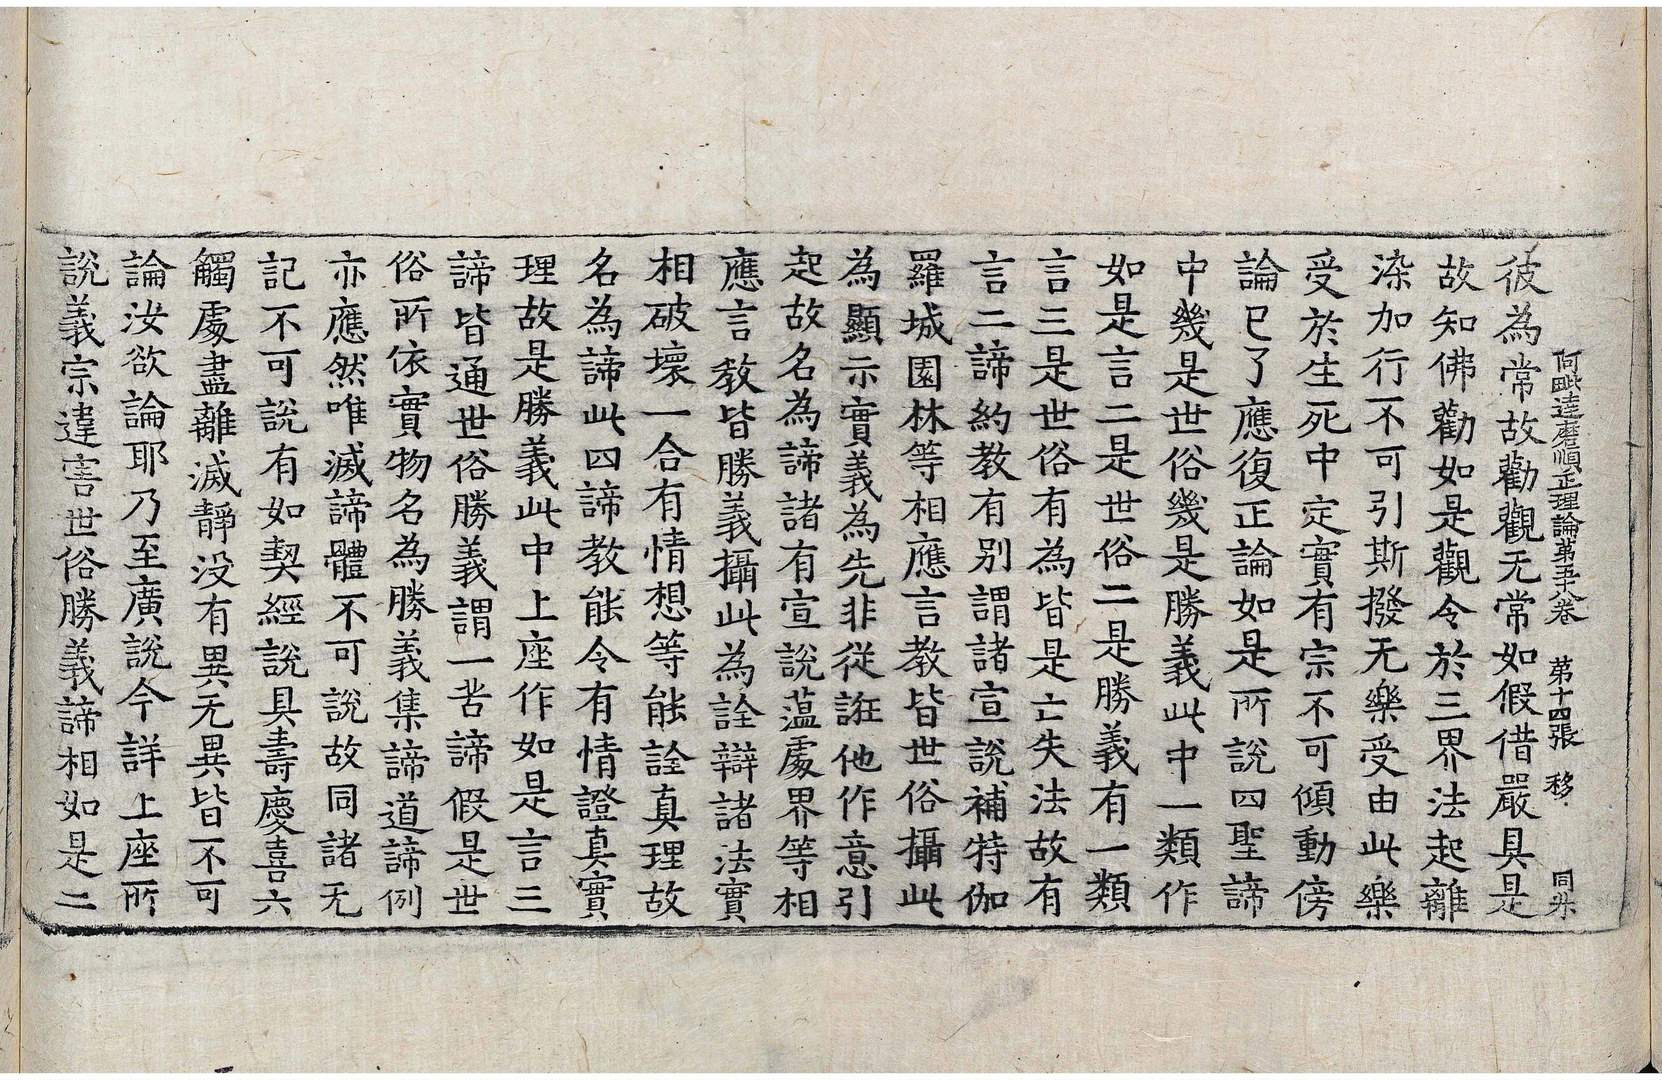 阿毗達磨順正理論第五十八卷 第十四張 移 同升
彼為常故勸觀无常如假借嚴具是
故知佛勸如是觀令於三界法起離
染加行不可引斯撥无樂受由此樂
受於生死中定實有宗不可傾動傍
論已了應復正論如是所說四聖諦
中幾是世俗幾是勝義此中一類作
如是言二是世俗二是勝義有一類
言三是世俗有為皆是亡失法故有
言二諦約教有别謂諸宣說補特伽
羅城園林等相應言教皆世俗攝此
為顯示實義為先非從誑他作意引
起故名為諦諸有宣說蘊處界等相
應言教皆勝義攝此為詮辯諸法實
相破壞一合有情想等能詮真理故
名為諦此四諦教能令有情證真實
理故是勝義此中上座作如是言三
諦皆通世俗勝義謂一苦諦假是世
俗所依實物名為勝義集諦道諦例
亦應然唯滅諦體不可說故同諸无
記不可說有如契經說具壽慶喜六
觸處盡離滅靜没有異无異皆不可
論汝欲論耶乃至廣說今詳上座所
說義宗違害世俗勝義諦相如是二